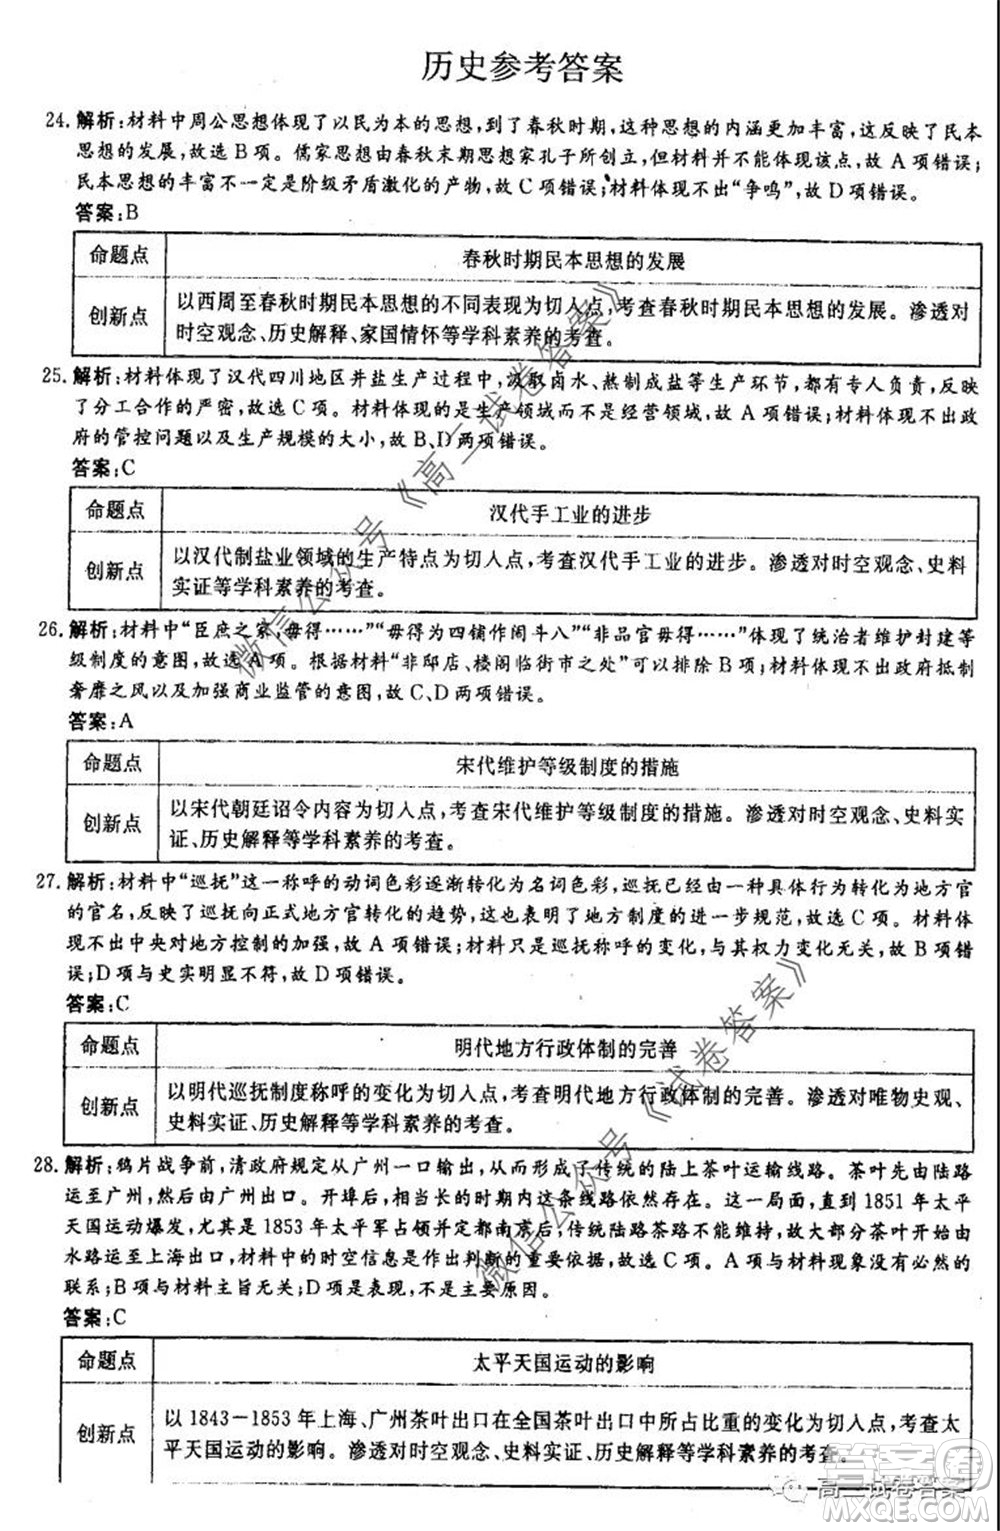 历史参考答案
24. 解析:材料中周公思想体现了以民为本的思想,到了春秋时期,这种思想的内涵更加丰富,这反映了民本
思想的发展,故选B项。儒家思想由春秋末期思想家孔子所创立,但材料并不能体现该点,故A项错误;
民本思想的丰富不一定是阶级矛盾激化的产物,故C项错误;材料体现不出“争鸣”,故D项错误。
答案:B
命题点 春秋时期民本思想的发展
创新点 以西周至春秋时期民本思想的不同表现为切入点,考查春秋时期民本思想的发展。渗透
对时空观念、历史解释、家国情怀等学科素养的考查。
25. 解析:材料体现了汉代四川地区井盐生产过程中,汲取卤水、熬制成盐等生产环节,都有专人负责,反映
了分工合作的严密,故选C项。材料体现的是生产领域而不是经营领域,故A项错误;材料体现不出政
府的管控问题以及生产规模的大小,故B、D两项错误。
答案:C
命题点 汉代手工业的进步
创新点 以汉代制盐业领域的生产特点为切入点,考查汉代手工业的进步。渗透对时空观念、史料
实证等学科素养的考查。
26. 解析:材料中“臣庶之家,毋得……”“毋得为四铺作闹斗八”“非品官毋得……”体现了统治者维护封建等
级制度的意图,故选A项。根据材料“非邸店、楼阁临街市之处”可以排除B项;材料体现不出政府抵制
奢靡之风以及加强商业监管的意图,故C、D两项错误。
答案:A
命题点 宋代维护等级制度的措施
创新点 以宋代朝廷诏令内容为切入点,考查宋代维护等级制度的措施。渗透对时空观念、史料实
证、历史解释等学科素养的考查。
27. 解析:材料中“巡抚”这一称呼的动词色彩逐渐转化为名词色彩,巡抚由最初的一种具体行为转化为地方官
的官名,反映了巡抚向正式地方官转化的趋势,这说明了地方制度的进一步规范,故选C项。材料体
现不出中央对地方控制的加强,故A项错误;材料只是巡抚称呼的变化,与其权力变化无关,故B项错
误;D项与史实明显不符,故D项错误。
答案:C
命题点 明代地方行政体制的完善
创新点 以明代巡抚制度称呼的变化为切入点,考查明代地方行政体制的完善。渗透对唯物史观、
史料实证、历史解释等学科素养的考查。
28. 解析:鸦片战争前,清政府规定从广州一口输出,从而形成了传统的陆上茶叶运输线路。茶叶先由陆路
运至广州,然后由广州出口。开埠后,相当长的时期内这条线路依然发挥着作用。这一局面,直到1851年太平
天国运动爆发,尤其是1853年太平军占领并定都南京后,传统陆路茶路不能维持,故大部分茶叶开始由
水路运至上海出口,材料中的时空信息是作出判断的重要依据,故选C项。A项与材料现象没有必然的
联系;B项与材料主旨无关;D项是表现,不是主要原因。
答案:C
命题点 太平天国运动的影响
创新点 以1843—1853年上海、广州茶叶出口在全国茶叶出口中所占比重的变化为切入点,考查太
平天国运动的影响。渗透对时空观念、史料实证、历史解释等学科素养的考查。
微信公众号《高二试卷答案》
微信公众号《试卷答案》
高二试卷答案
答案圈
MXQE.COM